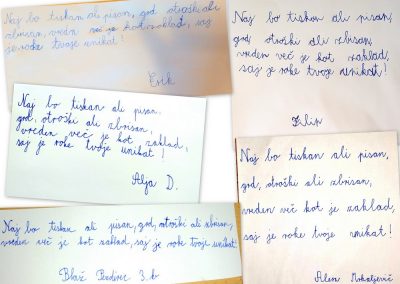 Naj bo tiskan ali pisan, grd, otroški ali
zbrisan, vreden več je kot zaklad, saj
je roke tvoje unikat!
Erik
Naj bo tiskan ali pisan,
grd, otroški ali zbrisan,
vreden več je kot zaklad,
saj je roke tvoje unikat!
Filip
Naj bo tiskan ali pisan,
grd, otroški ali zbrisan,
vreden več je kot zaklad,
saj je roke tvoje unikat!
Alja D.
Naj bo tiskan ali pisan,
grd, otroški ali zbrisan,
vreden več je kot zaklad,
saj je roke tvoje unikat!
Alen
Naj bo tiskan ali pisan, grd, otroški ali zbrisan,
vreden več je kot zaklad, saj je roke tvoje unikat!
Blaž 3. b